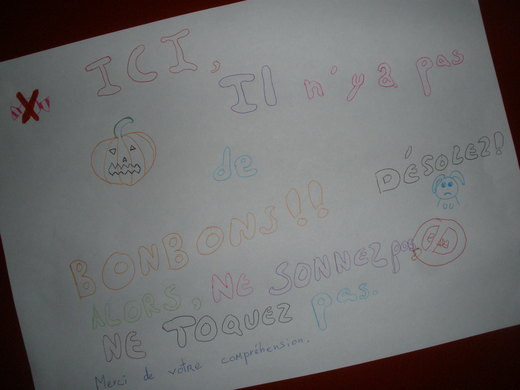 ICI,
Il n'y a pas
de
DÉSOLEZ!
BONBONS!!
ALORS, NE SONNEZ pas,
NE TOQUEZ pas.
Merci de votre compréhension.